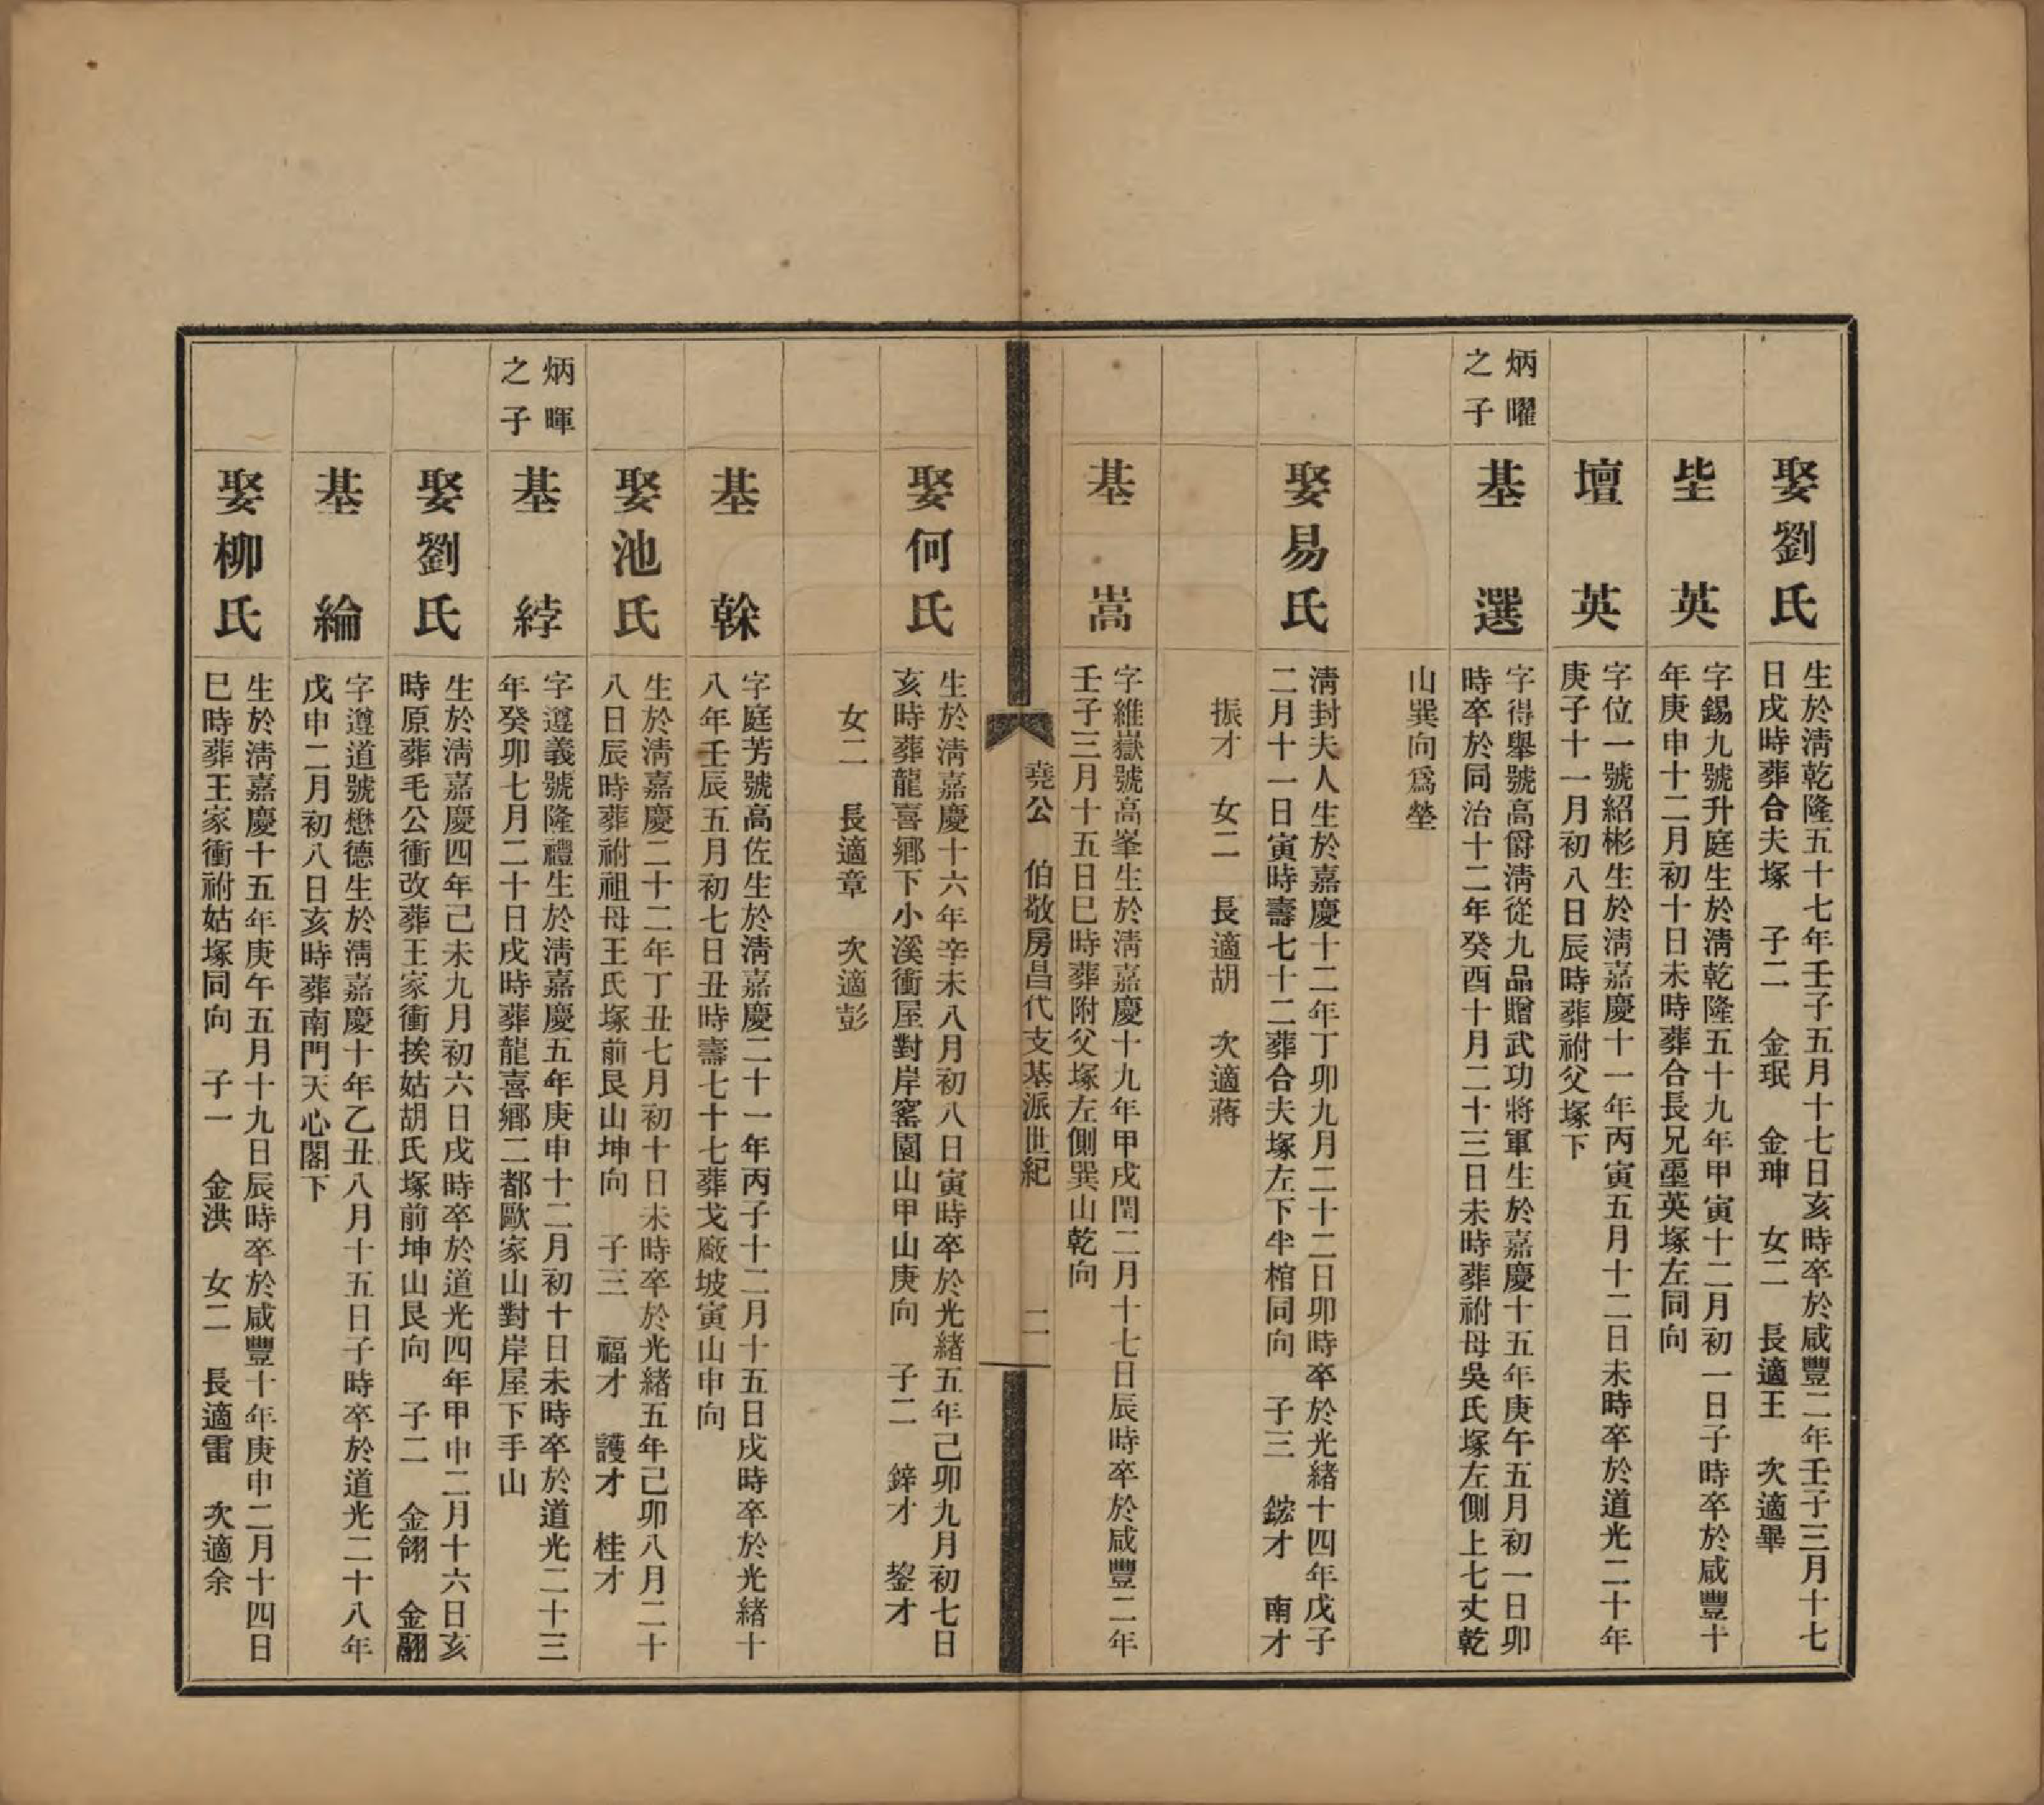 娶劉氏
生於淸乾隆五十七年壬子五月十七日亥時卒於咸豐二年壬子三月十七
日戌時葬合夫塚　子二　金珉　金珅　女二　長適王　次適畢
㘳英
字錫九號升庭生於淸乾隆五十九年甲寅十二月初一日子時卒於咸豐十
年庚申十二月初十日未時葬合長兄墨英塚左同向
壇英
字位一號紹彬生於淸嘉慶十一年丙寅五月十二日未時卒於道光二十年
庚子十一月初八日辰時葬祔父塚下
炳曜
之子
基選
字得舉號高爵淸從九品贈武功將軍生於嘉慶十五年庚午五月初一日卯
時卒於同治十二年癸酉十月二十三日未時葬祔母吳氏塚左側上七丈乾
山巽向爲塋
娶易氏
淸封夫人生於嘉慶十二年丁卯九月二十二日卯時卒於光緖十四年戊子
二月十一日寅時壽七十二葬合夫塚左下半棺同向　子三　鋐才　南才
振才　女二　長適胡　次適蔣
基嵩
字維嶽號高峯生於淸嘉慶十九年甲戌閏二月十七日辰時卒於咸豐二年
壬子三月十五日巳時葬附父塚左側巽山乾向
堯公　伯敬房昌代支基派世紀　二
娶何氏
生於淸嘉慶十六年辛未八月初八日寅時卒於光緖五年己卯九月初七日
亥時葬龍喜鄕下小溪衝屋對岸窰園山甲山庚向　子二　鋅才　鋆才
女二　長適章　次適彭
基榦
字庭芳號高佐生於淸嘉慶二十一年丙子十二月十五日戌時卒於光緖十
八年壬辰五月初七日丑時壽七十七葬戈廠坡寅山申向
娶池氏
生於淸嘉慶二十二年丁丑七月初十日未時卒於光緖五年己卯八月二十
八日辰時葬祔祖母王氏塚前艮山坤向　子三　福才　護才　桂才
炳暉
之子
基綍
字遵義號隆禮生於淸嘉慶五年庚申十二月初十日未時卒於道光二十三
年癸卯七月二十日戌時葬龍喜鄕二都歐家山對岸屋下手山
娶劉氏
生於淸嘉慶四年己未九月初六日戌時卒於道光四年甲申二月十六日亥
時原葬毛公衝改葬王家衝挨姑胡氏塚前坤山艮向　子二　金翎　金翮
基綸
字遵道號懋德生於淸嘉慶十年乙丑八月十五日子時卒於道光二十八年
戊申二月初八日亥時葬南門天心閣下
娶柳氏
生於淸嘉慶十五年庚午五月十九日辰時卒於咸豐十年庚申二月十四日
巳時葬王家衝祔姑塚同向　子一　金洪　女二　長適雷　次適余